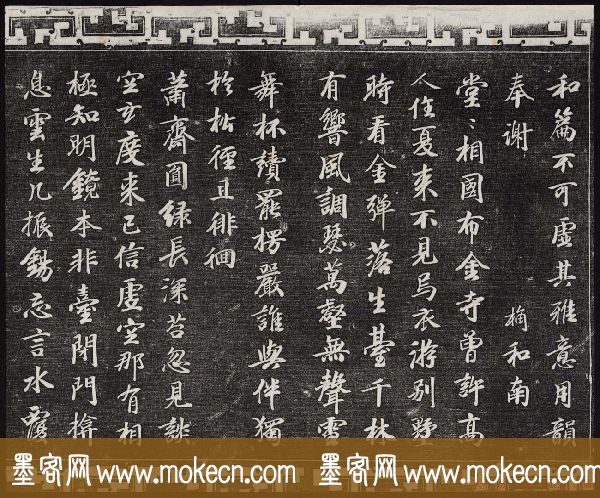 和篇不可虛其雅意用韻
奉謝 和南
堂〻相國布金寺曾許高
人住夏来不見烏衣游別墅
時看金彈落生臺千林
有響風調瑟萬壑無聲雪
舞杯讀罷楞嚴誰與伴獨
於松徑且徘徊
蕭齋圓緑長深苔忽見談
空玄度来已信虛空那有相
極知明鏡本非臺閉門
息雲生几振錫忘言水
墨客网 www.mokecn.com 墨客网 www.mokecn.com